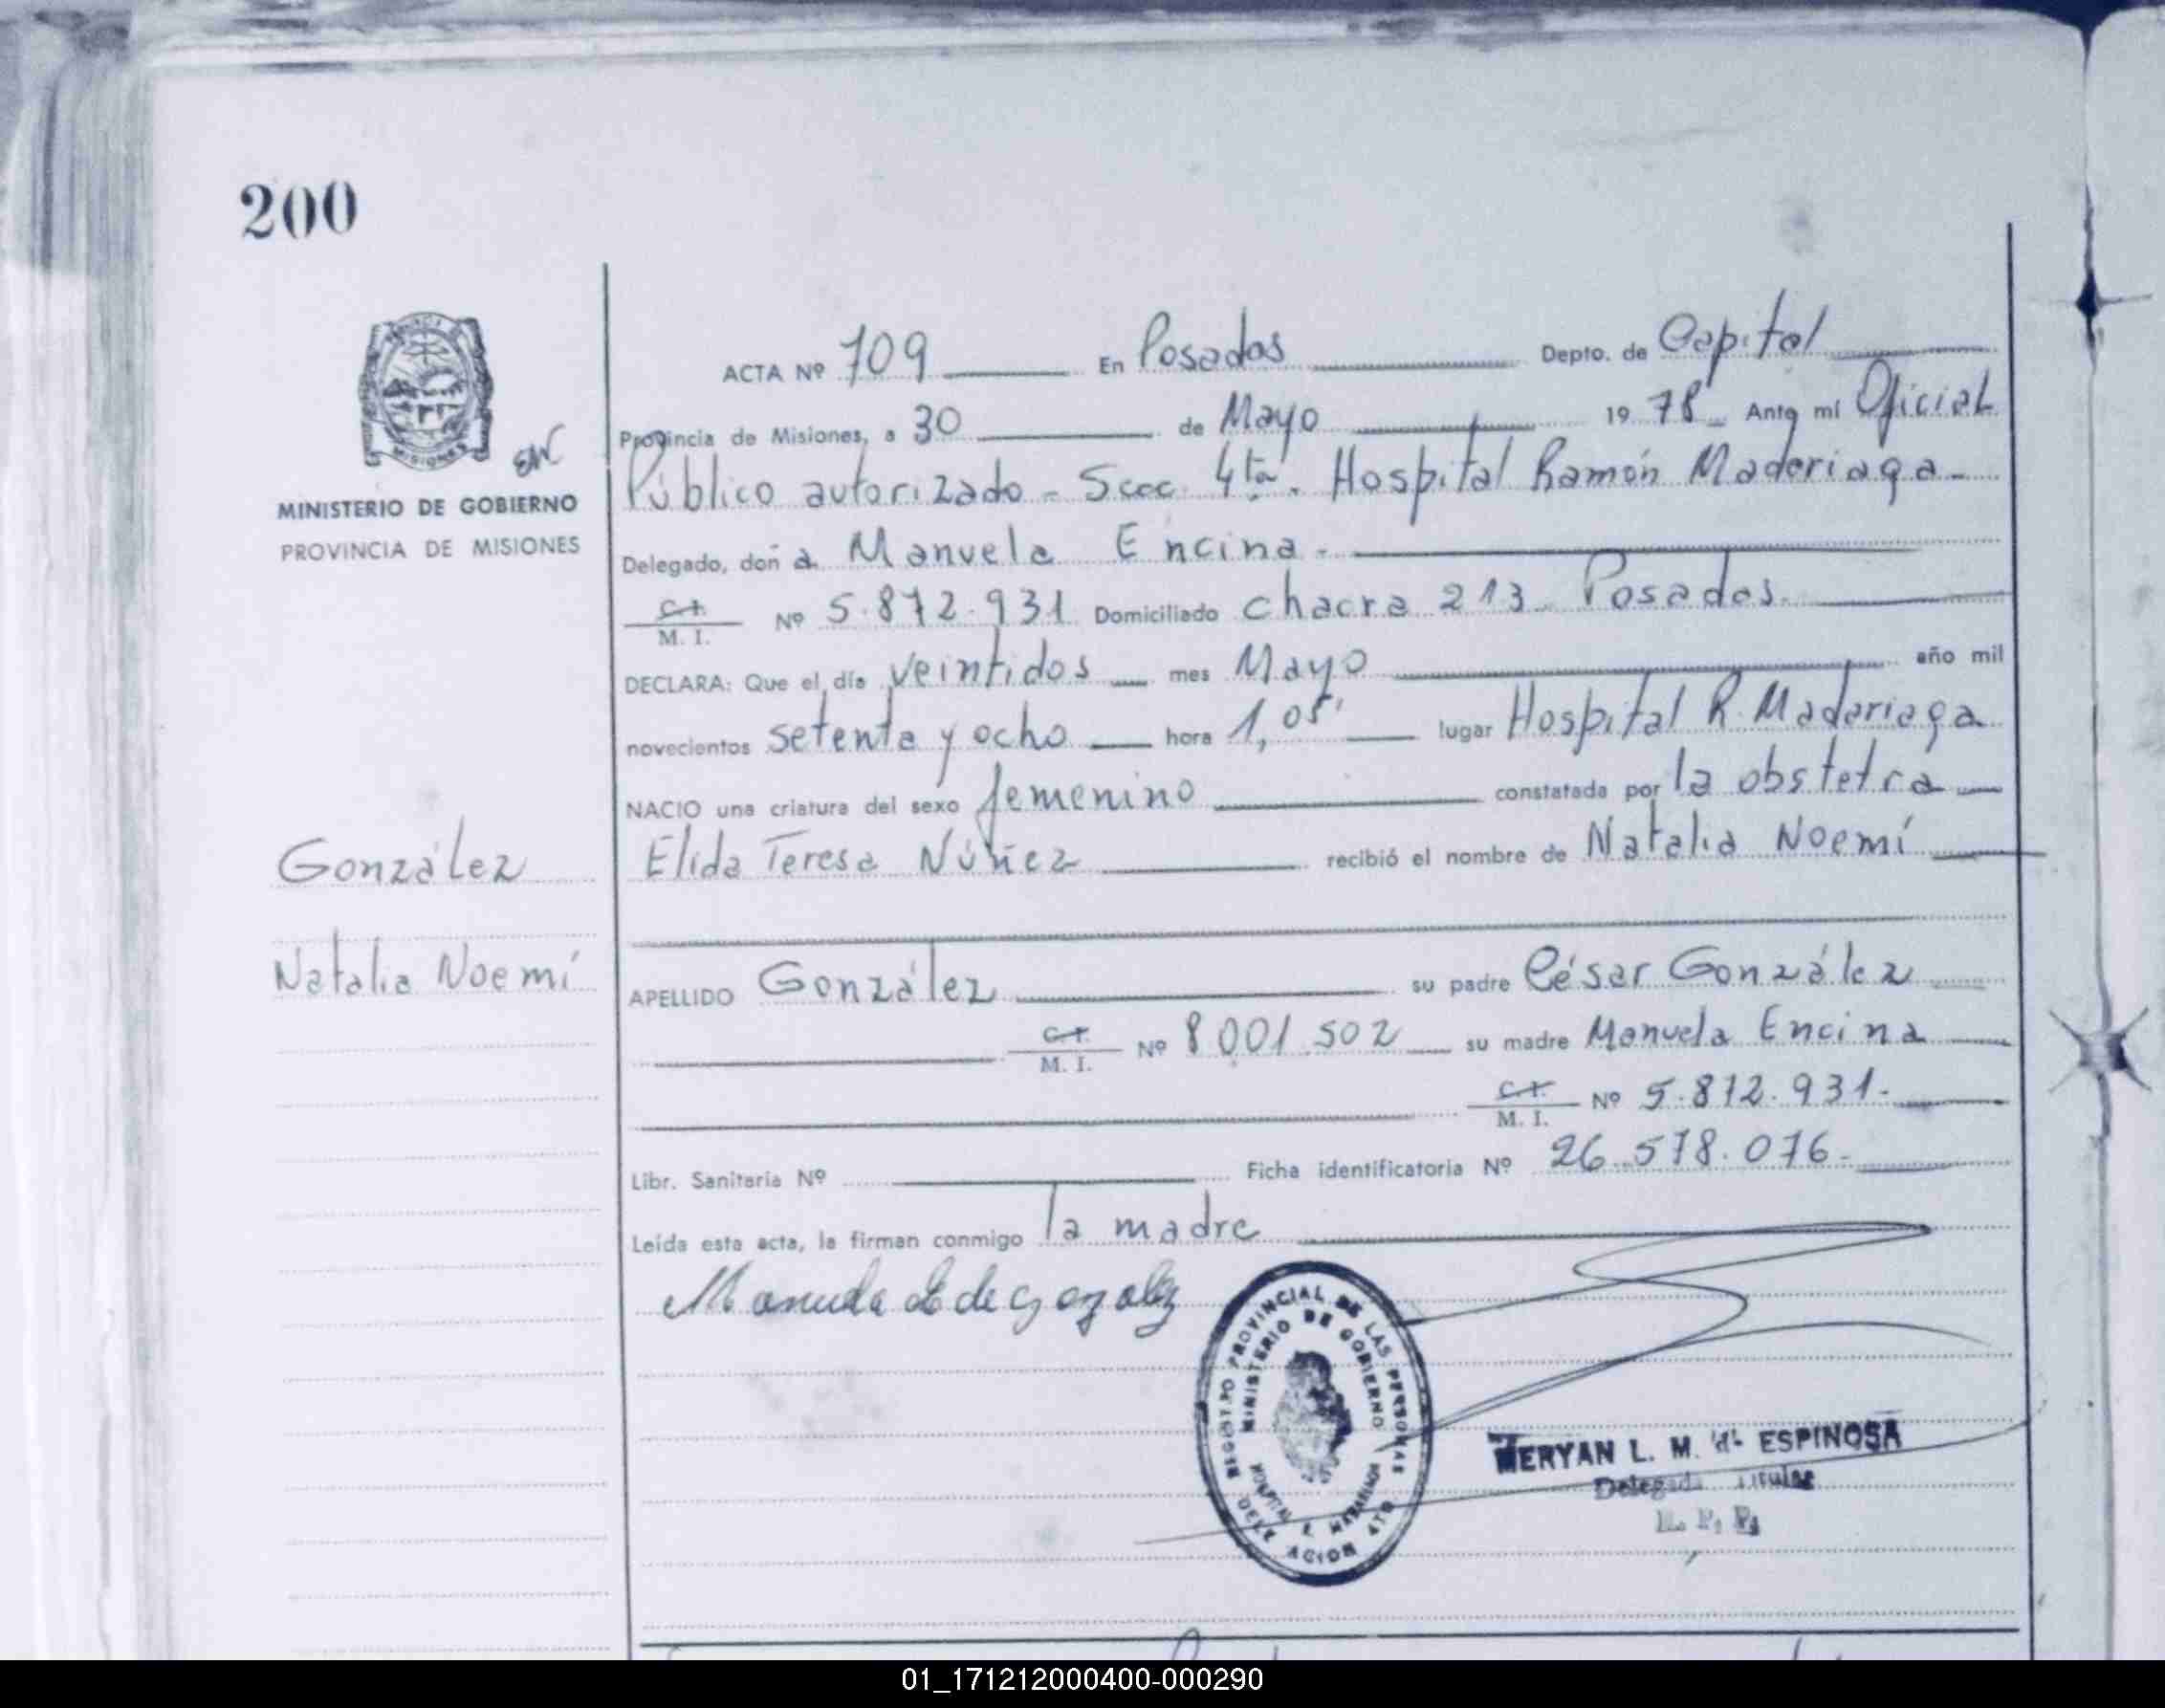 200
ACTA Nº 709 En Posadas Depto. de Capital
Provincia de Misiones, a 30 de Mayo 19 78 Ante mí Oficial
Público autorizado - Secc 4ta. Hospital Ramón Madariaga -
MINISTERIO DE GOBIERNO
PROVINCIA DE MISIONES
Delegado, doña Manuela Encina -
C.I. M. I. Nº 5.872.931 Domiciliado chacra 213 Posadas
DECLARA: Que el día veintidos mes Mayo año mil
novecientos setenta y ocho hora 1,05' lugar Hospital R. Madariaga
NACIO una criatura del sexo femenino constatada por la obstetra
González
Elida Teresa Núñez recibió el nombre de Natalia Noemí
Natalia Noemí
APELLIDO González su padre César González
C.I. M. I. Nº 8.001.502 su madre Manuela Encina
C.I. M. I. Nº 5.872.931.
Libr. Sanitaria Nº Ficha identificatoria Nº 26.578.076.
Leída esta acta, la firman conmigo la madre
Manuela E de Gozalez
REGISTRO PROVINCIAL DE LAS PERSONAS
MINISTERIO DE GOBIERNO
HOSPITAL R. MADARIAGA
DELEGACION 4TO
MERYAN L. M. de ESPINOSA
Delegada Titular
01_171212000400-000290